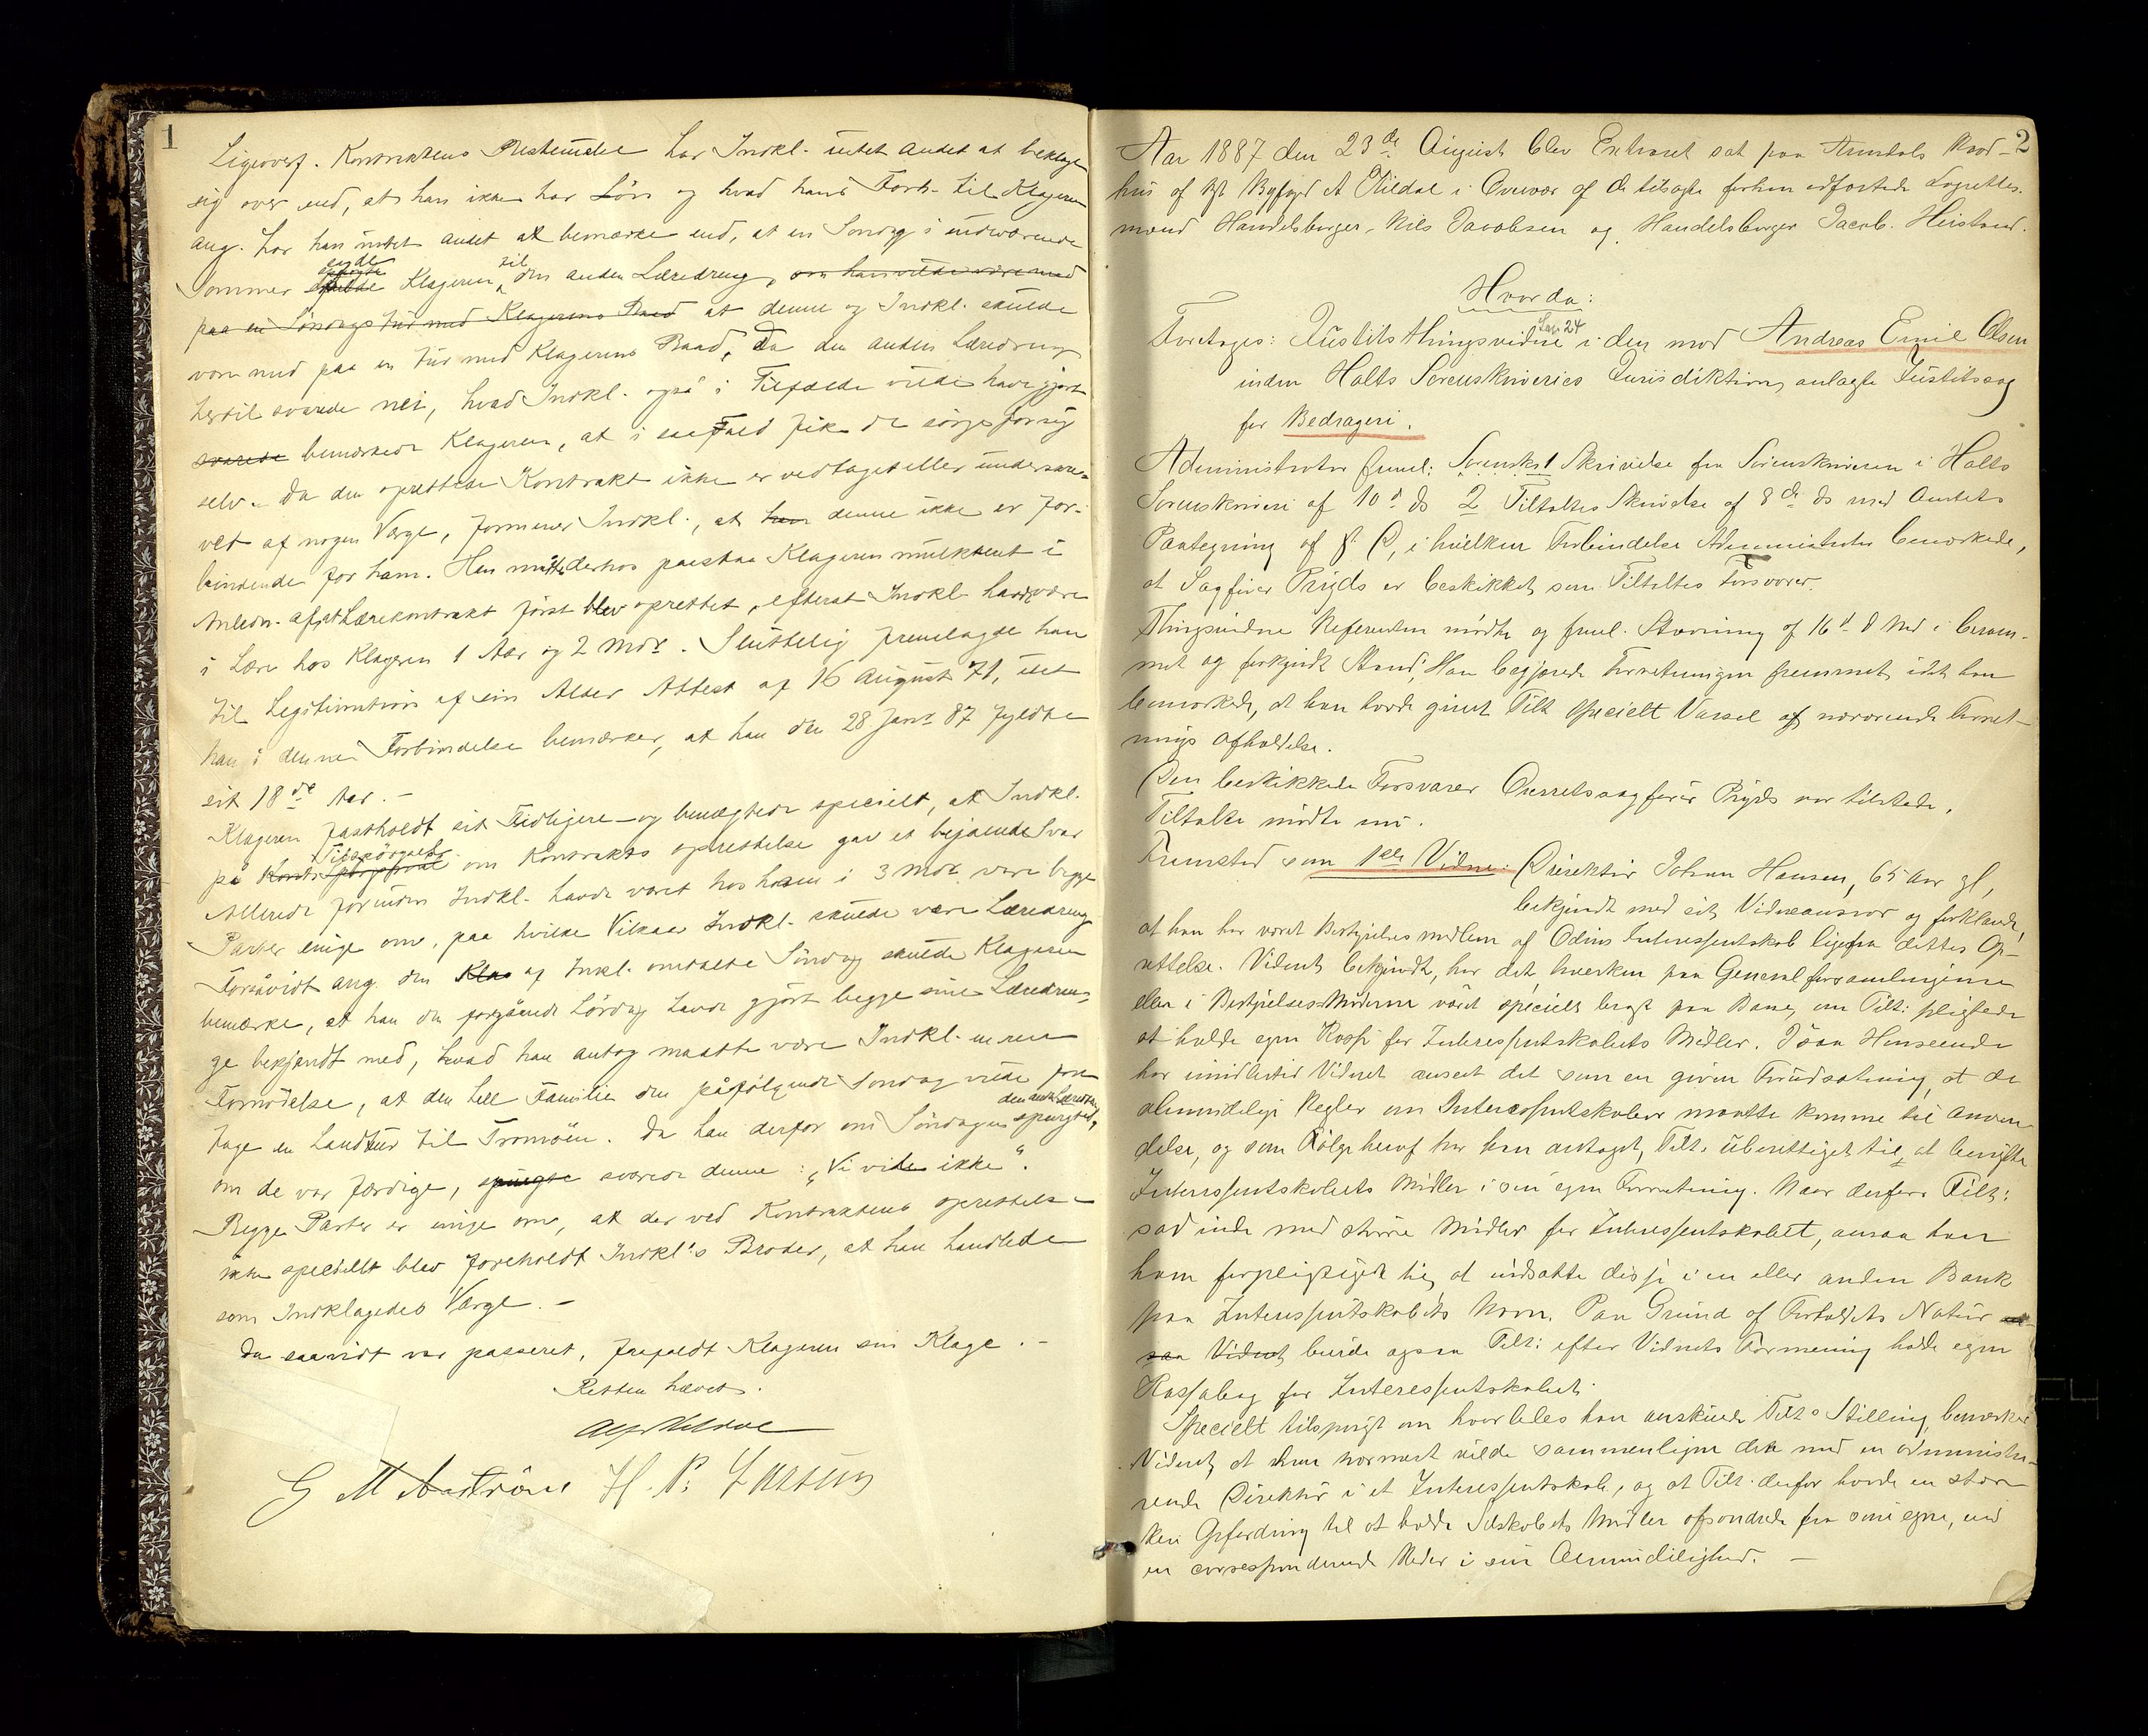 1
Ligeoverf. Kontraktens Bestemmelse har Indkl. intet andet at beklage
sig over end, at han ikke har Løn og hvad hans Forh. til Klageren
ang. har han intet andet at bemærke end, at en Søndag i indeværende
Sommer Klageren til den anden Læredreng, om han vilde være med
paa en Søndagstur med Klagerens Baad at denne og Indkl. skulde
være med paa en Tur med Klagerens Baad, Da den anden Læredreng
hertil svarede nei, hvad Indkl. også i Tilfælde vilde have gjort
svarede bemærkede Klageren, at i saafald fik de sørge for sig
selv. Da den oprettede Kontrakt ikke er vedtaget eller underskre-
vet af nogen Værge, formener Indkl., at han denne ikke er for-
bindende for ham. Han måtte derhos paastaa Klageren mulkteret i
Anledn. af at Lærekontrakt først blev oprettet, efterat Indkl. havde være
i Lære hos Klageren 1 Aar og 2 Mdr. Sluttelig fremlagde han
til Legitimation af sin Alder Attest af 16 August 71, idet
han i denne Forbindelse bemærker, at han den 28 Janr 87 fyldte
sit 18de Aar. -
Klageren fastholdt sit Tidligere og benægtede specielt, at Indkl.
på Tilspørgsel om Kontrakts oprettelse gav et bejaende Svar
Allerede forinden Indkl. havde været hos ham i 3 Mdr. vare begge
Parter enige om, paa hvilke Vilkaar Indkl. skulde være Læredreng
Forsåvidt ang. den Klas af Inkl. omtalte Søndag skulde Klageren
bemærke, at han den forgående Lørdag havde gjort begge sine Lædren-
ge bekjendt med, hvad han antog maatte være Indkl. en ren
Fornøielse, at den hele Familie den påfølgende Søndag vilde fore
tage en Landtur til Tromøen. Da han derfor om Søndagen spurgte
om de var færdige, spurgte svarede denne: "Vi vide ikke".
Begge Parter er enige om, at der ved Kontraktens oprettelse
ikke specielt blev foreholdt Indkl's Broder, at han handlede
som Indklagedes Værge. -
Da saavidt var passeret, frafaldt Klageren sin Klage. -
Retten hævet.
2
Aar 1887 den 23de August blev Extraret sat paa Arendals Raad-
hus af kst Byfoged A Olildal i Overvær af de tilsagte forhen edfæstede Lagrettes-
mænd Handelsborger Nils Jacobsen og Handelsborger Jacob Heistad.
Hvorda:
Foretoges: Justits thingsvidne i den mod Andreas Emil Olsen
inden Holts Sorenskriveries Jurisdiktion anlagte Justitssag
for Bedrageri.
Administrator freml: 1 Skrivelse fra Sorenskriveren i Holts
Sorenskriveri af 10d ds 2 Tiltaltes Skrivelse af 8de ds med Amtets
Paategning af s. D, i hvilken Forbindelse Administrator bemærkede,
at Sagfører Pryds er beskikket som Tiltaltes Forsvarer.
Thingsvidne Referenten mødte og freml. Stævning af 16d d Md i beram-
met og forkyndt Stand; Han begjærede Forretningen fremmet, idet han
bemærkede, at han havde givet Tilt specielt Varsel af nærværende Forret-
nings Afholdelse.
Den beskikkede Forsvarer Overretssagfører Pryds var tilstede.
Tiltalte mødte
Fremstod som 1ste Vidne: Direktør Johan Hansen, 65 Aar gl,
bekjendt med sit Vidneansvar og forklarede,
at han har været Bestyrelsesmedlem af Odins Interessentskab ligefra dettes Op-
rettelse. Vidnet bekjendt, har det hverken paa Generalforsamlingerne
eller i Bestyrelses-Møderne været specielt bragt paa Bane, om Tilt: pligtede
at holde egen Kasse for Interessentskabets Midler. I saa Henseende
har imidlertid Vidnet anseet det som en given Forudsætning, at de
almindelige Regler om Interessentskaber maatte komme til Anven-
delse, og som Følge heraf har han antaget, Tilt: uberettiget til at benytte
Interessentskabets Midler i sin egen Forretning. Naar derfor Tilt:
sad inde med større Midler for Interessentskabet, ansaa han
ham forpligtiget til at indsætte disse i en eller anden Bank
paa Interessentskabets Navn. Paa Grund af Forholdets Natur
saa Vidnet burde ogsaa Tilt: efter Vidnets Formening holde egen
Kassabog for Interessentskabet.
Specielt tilspurgt om hvorledes han anskuede Tilt: Stilling, bemærker
Vidnet, at han nærmest vilde sammenligne den med en administre-
rende Direktør i et Interessentskab, og at Tilt. derfor havde en stær-
kere Opfordring til at holde Selskabets Midler afsondrede fra sine egne, end
en corresponderende Reder i sin Almindelighed. -